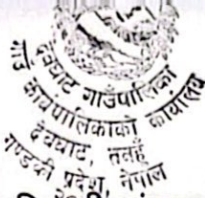 देवघाट गाउँपालिका
गाउँ कार्यपालिकाको कार्यालय
देवघाट, तनहुँ
गण्डकी प्रदेश, नेपाल